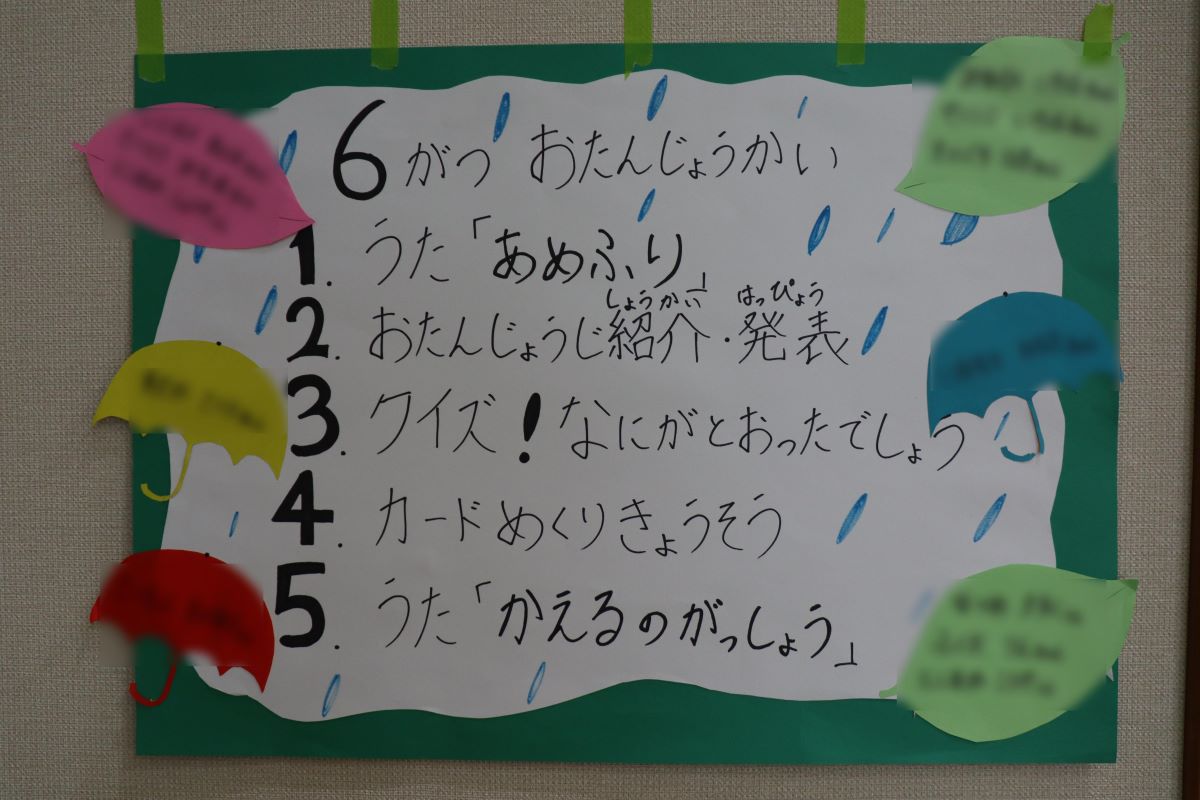 6がつ おたんじょうかい
1. うた「あめふり」
しょうかい はっぴょう
2. おたんじょうじ紹介・発表
3. クイズ!なにがとおったでしょう
4. カードめくりきょうそう
5. うた「かえるのがっしょう」